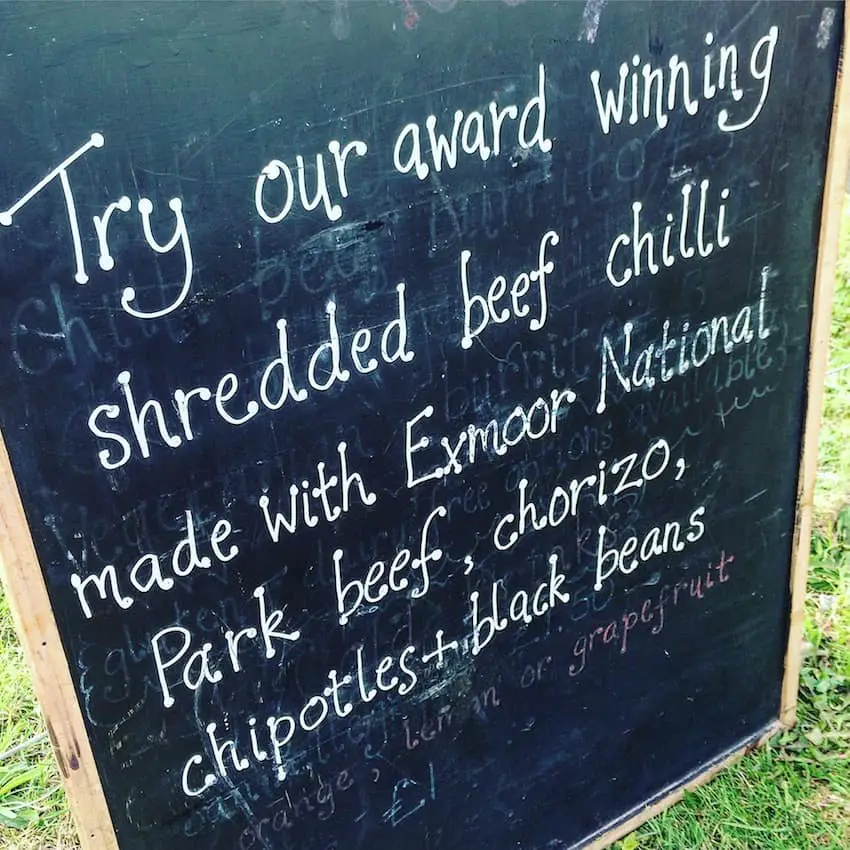 Try our award winning
shredded beef chilli
made with Exmoor National
Park beef, chorizo,
chipotles + black beans
orange, lemon or grapefruit
£1